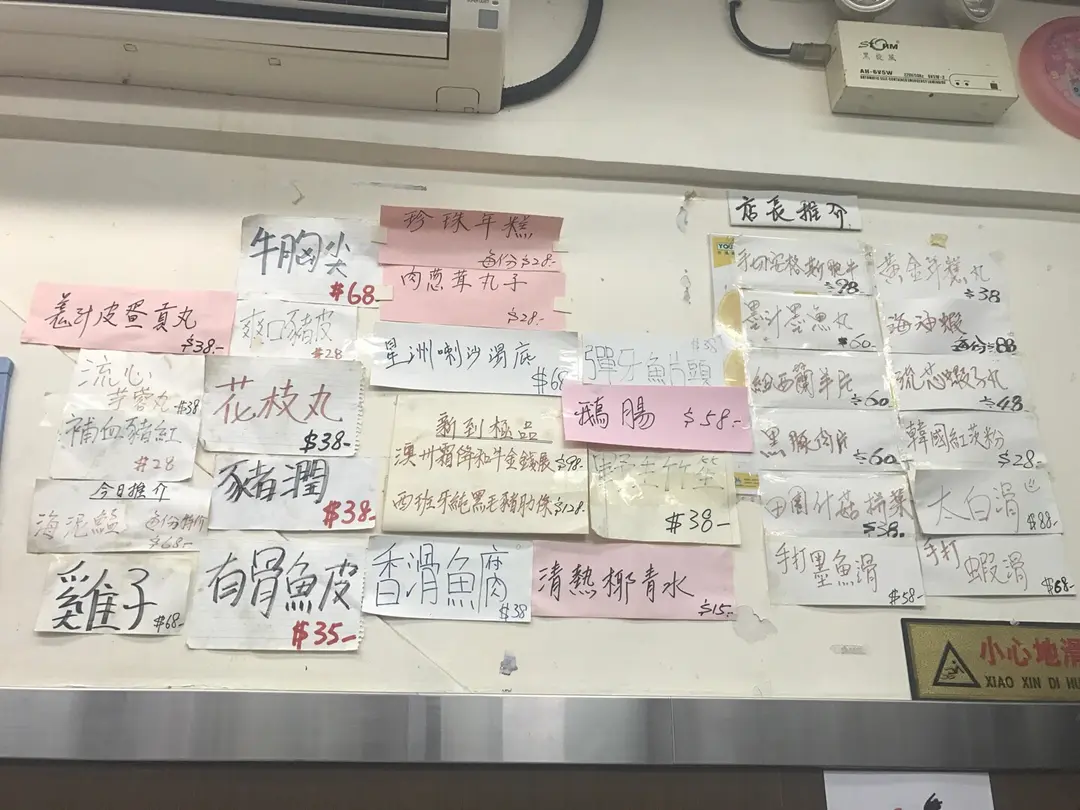 STOHM
AH-625W
店長推介
牛胸尖
#68
珍珠年糕
每份$28-
肉蔥茸丸子
$28-
皮蛋貢丸
$38-
爽口豬皮
#28
星洲喇沙湯底
$68
彈牙魚片頭
$38
流心
芋蓉丸 #38
花枝丸
$38-
補血豬紅
#28
新到極品
澳州霜降和牛金錢展 $98-
西班牙純黑毛豬肋條 $128-
鵝腸 $58-
竹笙
#38-
今日推介
海泥鯭 每份特價
$68-
豬潤
$38-
雞子
$68-
有骨魚皮
#35-
香滑魚腐
$38
清熱椰青水
$15-
手切安格斯肥牛
98
黃金芋糕丸
38
墨汁墨魚丸
$60-
海油蝦
每份88
紐西蘭羊片
60
流芯蝦丸
48
黑豚肉片
60
韓國紅茨粉
$28-
田園什菇拼菜
$38.
太白滑
$88-
手打墨魚滑
$58-
手打
蝦滑
$68-
小心地滑
XIAO XIN DI HU